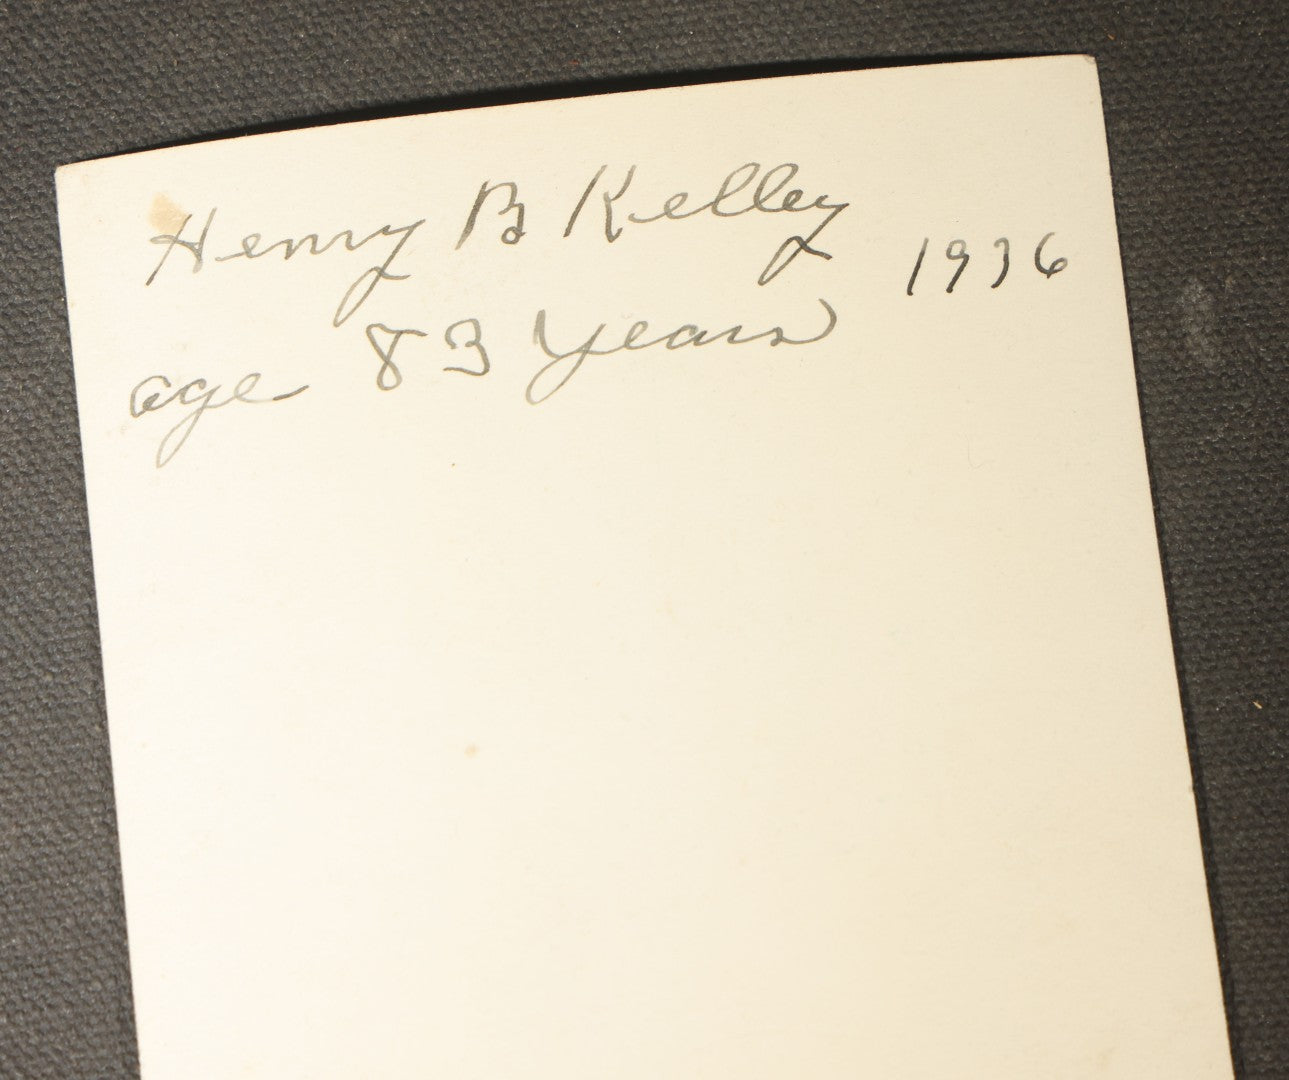 Henry B Kelley 1936
age 83 Years